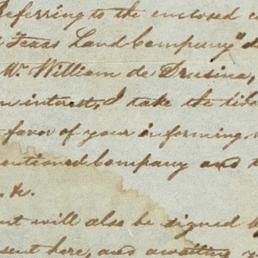 Referring to the enclosed
Texas Land Company"
Mr. William de Drusina,
interest, I take the
favor of your informing
mentioned Company and
&.
will also be signed
sent here, and awaiting